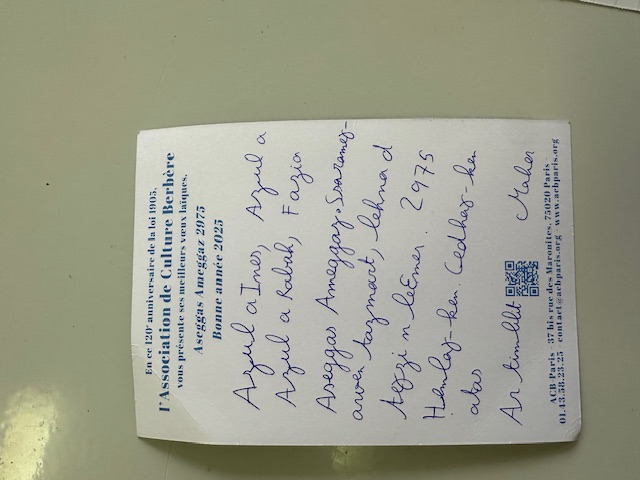 En ce 120e anniversaire de la loi 1905,
l'Association de Culture Berbère
vous présente ses meilleurs vœux laïques.
Aseggas Ameggaz 2975
Bonne année 2025
Azul a Ines, Azul a
Azul a Rabah, Fazia
Aseggas Ameggaz. Ssarameɣ-
awen tazmart, lehna d
teɣzi n leɛmer. 2975
Ḥemleɣ-ken. Cedhaɣ-ken
atas
Ar timlilit Maher
ACB Paris - 37 bis rue des Maronites, 75020 Paris
01.43.58.23.25 - contact@acbparis.org - www.acbparis.org